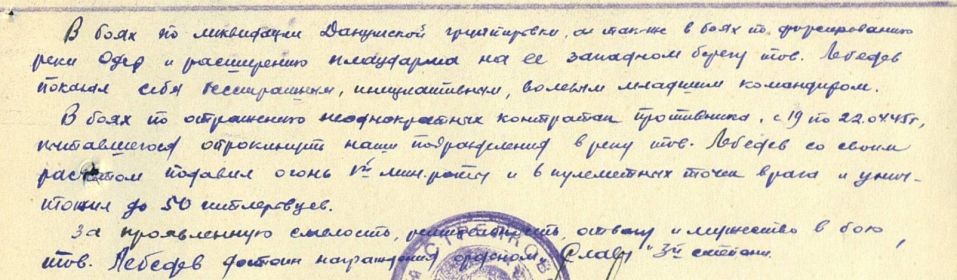 В боях по ликвидации Данцигской группировки, а также в боях по форсированию
реки Одер и расширению плацдарма на ее западном берегу тов. Лебедев
показал себя бесстрашным, инициативным, волевым младшим командиром.
В боях по отражению неоднократных контратак противника, с 19 по 22.04.45г,
пытавшегося опрокинуть наши подразделения в реку тов. Лебедев со своим
расчетом подавил огонь 1й мин. роты и 6 пулеметных точек врага и унич-
тожил до 50 гитлеровцев.
За проявленную смелость, решительность, отвагу и мужество в бою,
тов. Лебедев достоин награждения орденом "Слава" 3й степени.
СТРЕЛКОВ